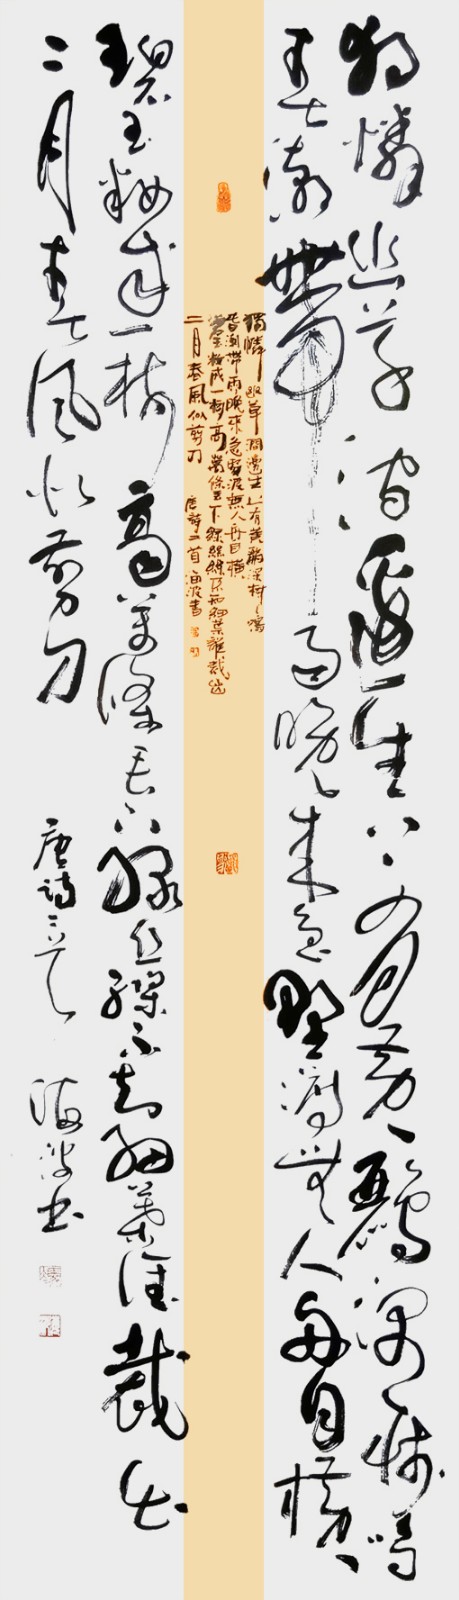 獨憐幽草澗邊生上有黃鸝深樹鳴
春潮帶雨晚來急野渡無人舟自橫
獨憐幽草澗邊生上有黃鸝深樹鳴
春潮帶雨晚來急野渡無人舟自橫
碧玉妝成一樹高萬條垂下綠絲縧不知細葉誰裁出
二月春風似剪刀 唐詩二首 海波書
碧玉妝成一樹高萬條垂下綠絲縧不知細葉誰裁出
二月春風似剪刀 唐詩二首 海波書